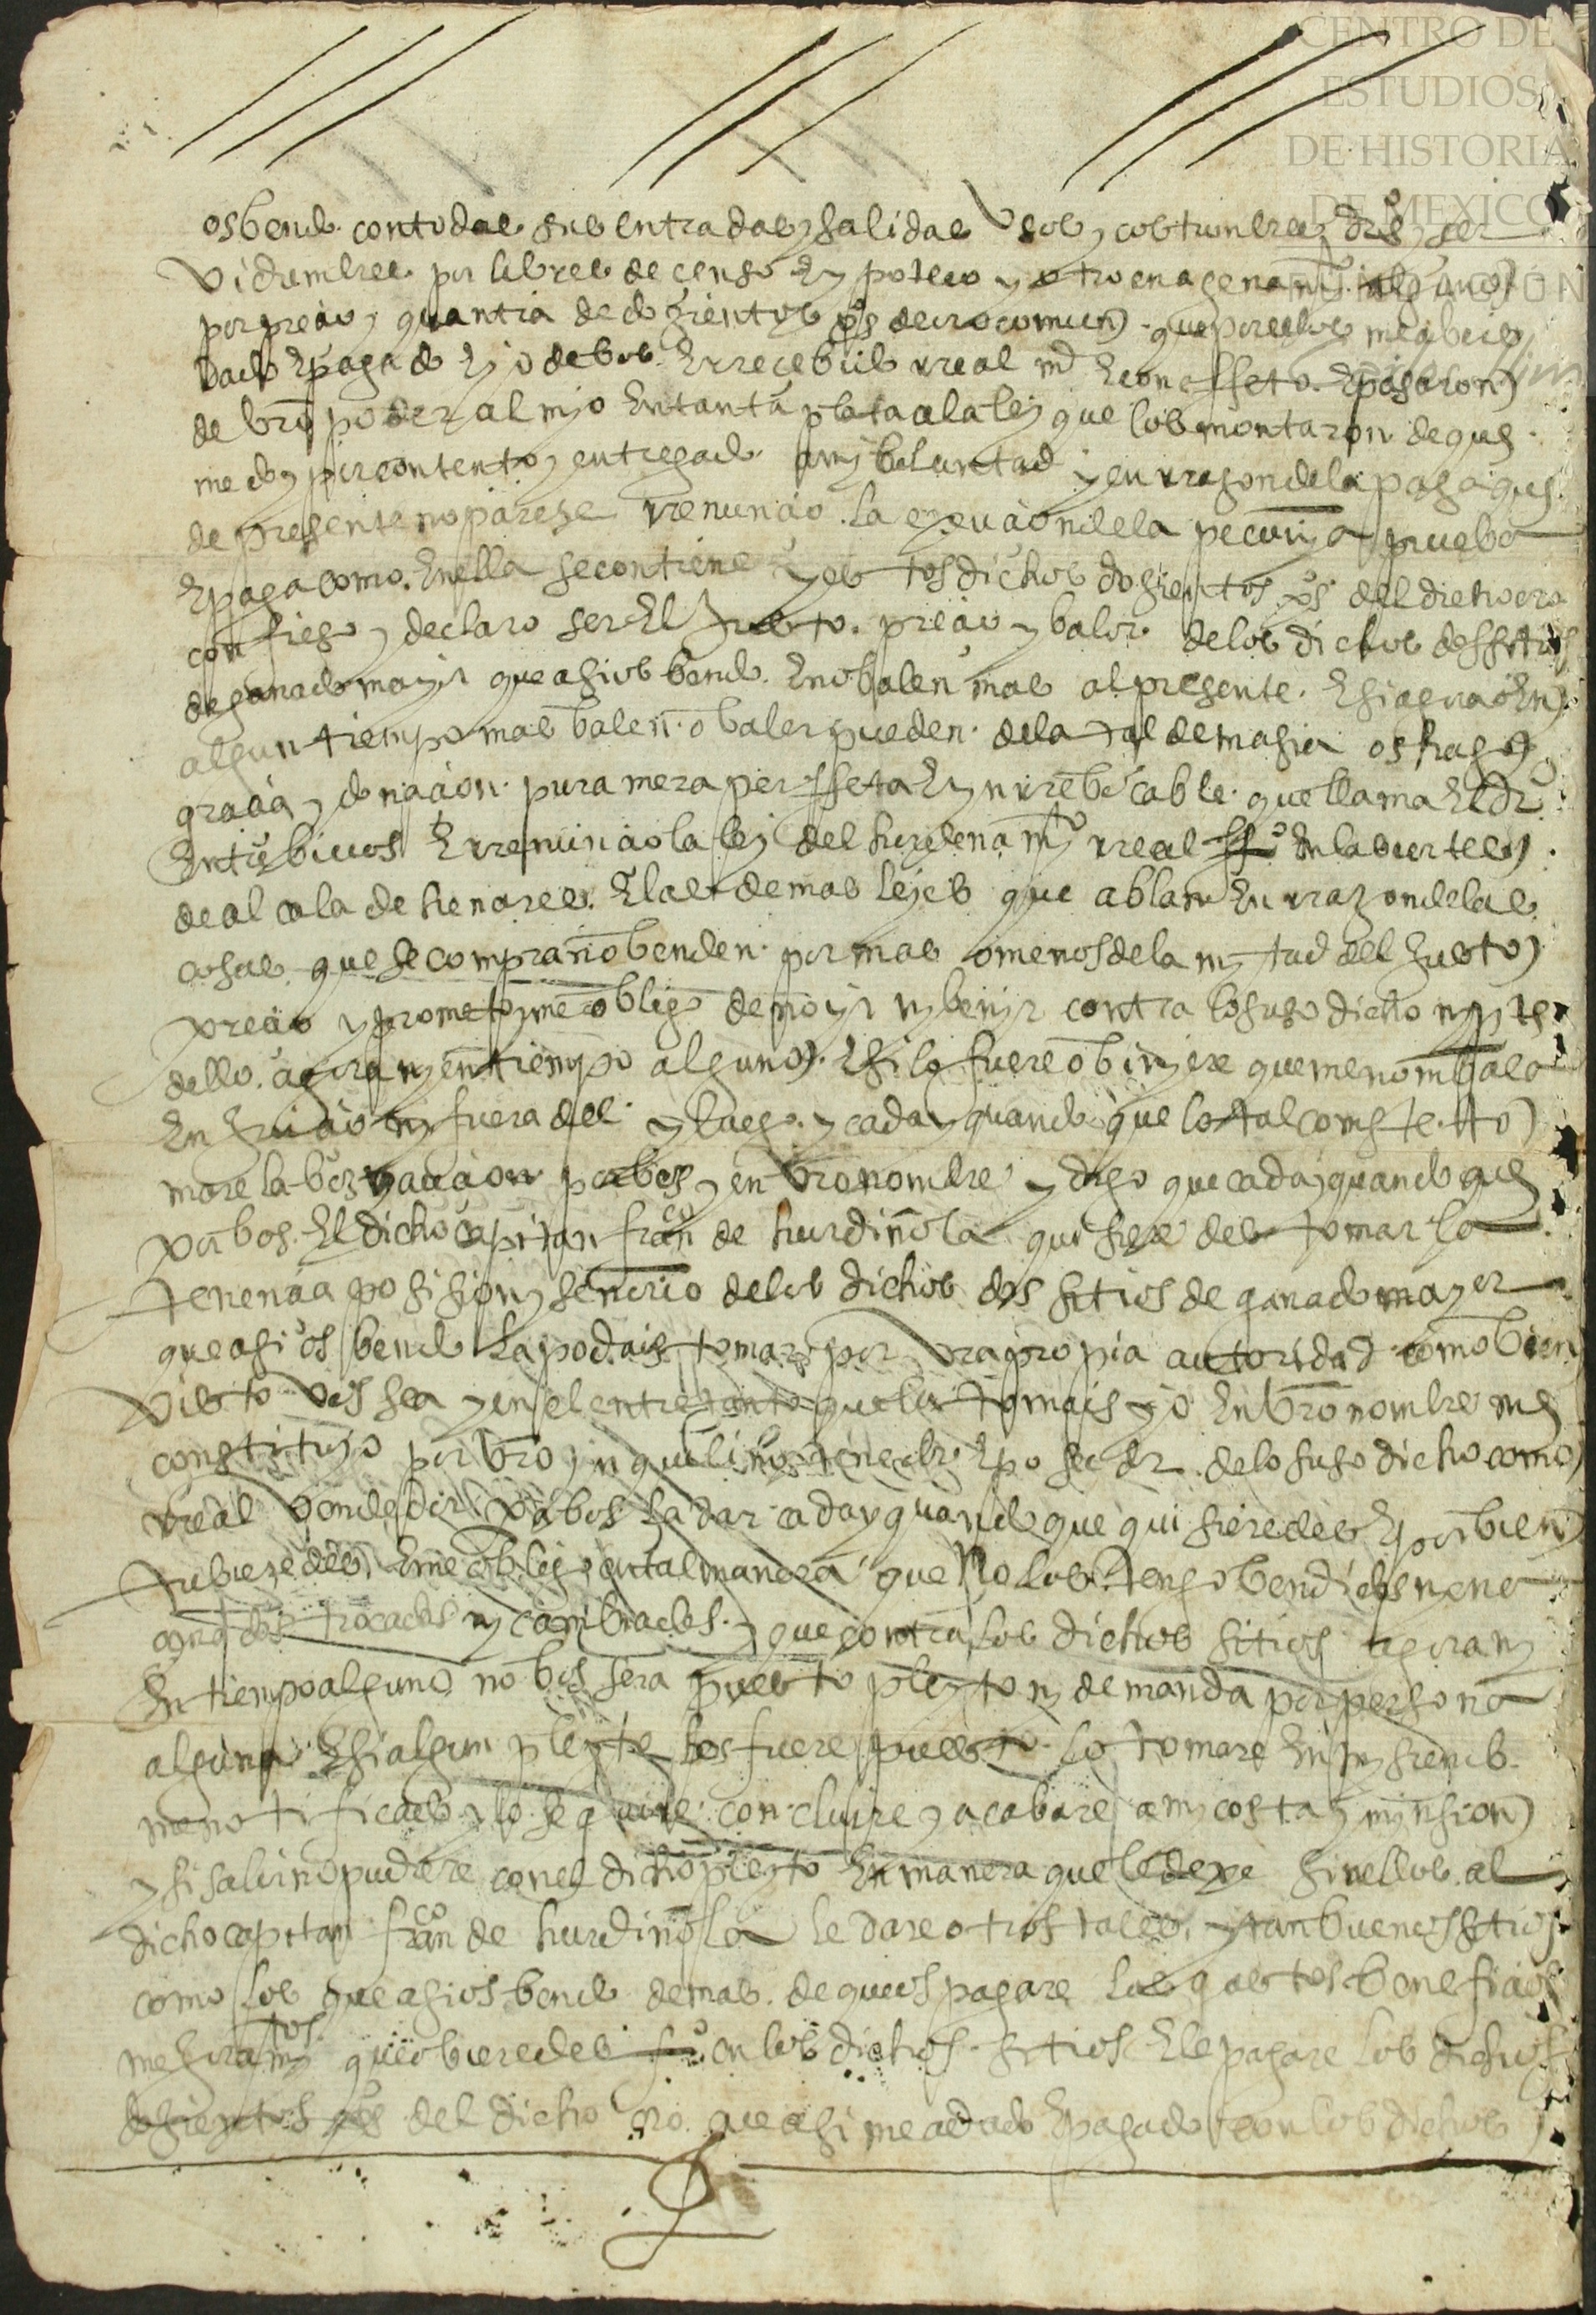 CENTRO DE
ESTUDIOS
DE HISTORIA
DE MEXICO
FUNDACIÓN
os bendo con todas sus entradas y salidas usos y costumbres drõs y ser
vidumbres por libres de censo E ypoteca y otro enagenamyto alguno
por preçio y quantia de dozientos pºs de oro comun que por ellos me abeis
dado E pagado E yo de bos E rreçebido rreal md E con effeto E pasaron
de brõ poder al myo En tanta plata a la ley que los montaron de que
me doy por contento y entregado a my boluntad y en rrazon de la paga que
de presente no pareze rrenunçio la exeuçion de la pecunya prueba
E paga como En ella se contiene y estos dichos dozientos pºs del dicho oro
confieso y declaro ser El Justo preçio y balor de los dichos dos sitios
de ganado mayor que asi os bendo E no balen mas al presente E si agora o En
algun tiempo mas balen o baler pueden de la tal demasia os hago
graçia y donaçion pura mera perffeta E ynrrebocable que llama El drº
Entre bibos E rrenunçio la ley del hordenamyto rreal ffº En las cortes
de alcala de henares E las demas leyes que ablan En rrazon de las
cosas que se compran o benden por mas o menos de la mytad del Justo
preçio y prometo y me obligo de no yr ny benyr contra lo suso dicho ny pte
dello agora ny en tiempo alguno E si lo fuere o binyere que me non bala
En Juiçio ny fuera del y luego y cada y quando que lo tal conste to
mare la boz y auçion por bos y en brõ nombre y digo que cada y quando que
por bos El dicho capitan franco de hurdiñola quisieredes tomar la
tenençia posision y señorio de los dichos dos sitios de ganado mayor
que asi os bendo la podais tomar por vrã propia autoridad como bien
visto vos sea y en el entretanto que la tomais yo En brõ nombre me
constituyo por brõ ynquilino tenedor E poseedor de lo suso dicho como
rreal bendedor para bos la dar cada y quando que quisieredes E por bien
tubieredes E me obligo en tal manera que No los tengo bendidos nenº
genados trocados ny canbiados y que contra los dichos sitios agora ny
En tiempo alguno no bos sera puesto pleyto ny demanda por persona
alguna E si algun pleyto bos fuere puesto lo tomare En my siendo
me notificado y lo seguire concluire y acabare a my costa y mynsion
y si salir no pudiere con el dicho pleyto En manera que le dexe sin ellos al
dicho capitan franco de hurdiñola le dare otros tales y tan buenos sitios
como los que asi os bendo demas de que os pagare los gastos beneficios
mejoramytos que obieredes fº en los dichos sitios E le pagare los dichos
dosientos pºs del dicho oro que asi me a dado E pagado con los dichos